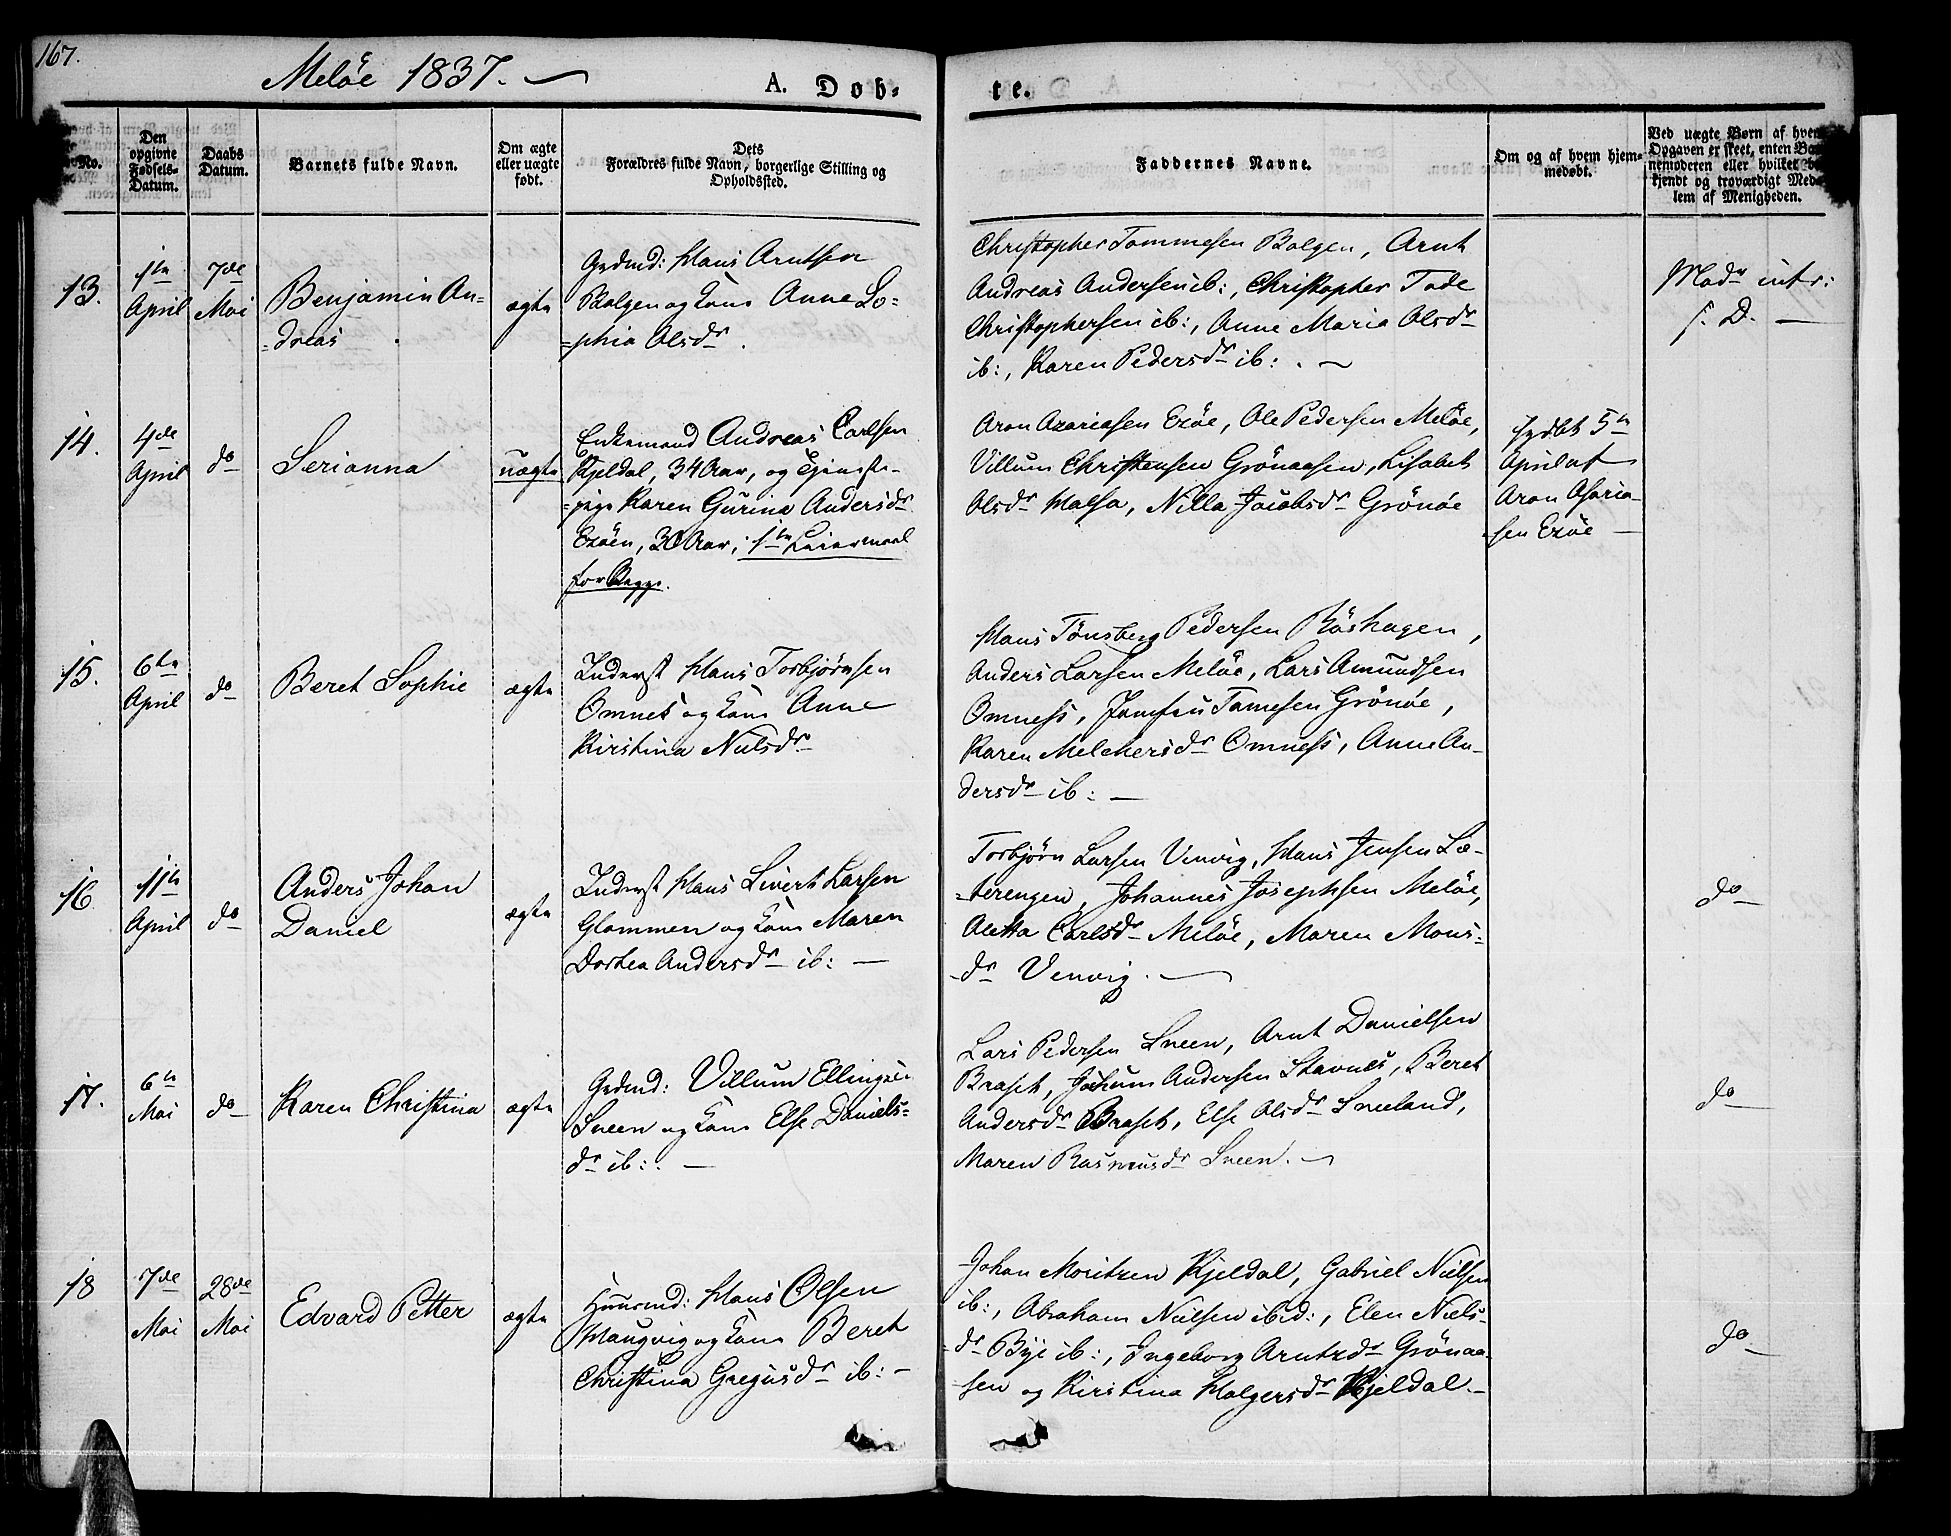 167.
Meløe 1837. —
A. Døb-
te.
No.
Den
opgivne
Fødsels-
Datum.
Daabs
Datum.
Barnets fulde Navn.
Om ægte
eller uægte
født.
Dets
Forældres fulde Navn, borgerlige Stilling og
Opholdssted.
Faddernes Navne.
Om og af hvem hjem-
medøbt.
Ved uægte Børn af hvem
Opgaven er skeet, enten Bar-
nemoderen eller hvilket be-
kjendt og troværdigt Med-
lem af Menigheden.
13.
1te
April
7de
Mai
Benjamin An=
=dreas
ægte
Grdmd: Hans Arntsen
Bolgen og Kone Anne So=
=phia Olsdr.
Christopher Tommesen Bolgen, Arnt
Andreas Andersen ib:, Christopher Tode
Christophersen ib:, Anne Maria Olsdr
ib:, Karen Pedersdr ib: . ~
Modr intr:
s. D. —
14.
4de
April
do
Serianna
uægte
Enkemand Andreas Carlsen
Kjeldal, 34 Aar, og Tjeneste-
=pige Karen Gurina Andersdr
Exöen, 30 Aar, 1te Leiermaal
for Begge.
Aron Azariasen Exöe, Ole Pedersen Melöe,
Villum Christensen Grönaasen, Lisabet
Olsdr Halsa, Nilla Jacobsdr Grönöe
hjdbt 5te
April af
Aron Asaria-
sen Exöe —
15.
6te
April
do
Beret Sophie
ægte
Inderst Hans Torbjörnsen
Omnes og Kone Anne
Kirstina Nielsdr
Hans Tönsberg Pedersen Röshagen,
Anders Larsen Melöe, Lars Amundsen
Omness, Tomesen Grönöe,
Karen Melchersdr Omness, Anne An-
dersdr ib: —
16
11te
April
do
Anders Johan
Daniel
ægte
Inderst Hans Sivert Larsen
Glommen og Kone Maren
Dorthea Andersdr ib: —
Torbjörn Larsen Venvig, Hans Jensen Sæ-
=terengen, Johannes Josephsen Melöe,
Aletta Carlsdr Melöe, Maren Mons-
dr Venvig. —
do
17.
6te
Mai
do
Karen Christina
ægte
Grdmd: Villum Ellingsen
Sneen og Kone Else Daniels=
dr ib: . —
Lars Pedersen Sneen, Arnt Danielsen
Braset, Jochum Andersen Stavnes, Beret
Andersdr Braset, Else Olsdr Sneeland,
Maren Rasmusdr Sneen. ~
do
18
7de
Mai
28de
Mai
Edvard Petter
ægte
Huusmd: Hans Olsen
Haugvig og Kone Beret
Christina Gregusdr ib: —
Johan Moritzen Kjeldal, Gabriel Nielsen
ib:, Abraham Nielsen ibid:, Elen Niels-
dr Bye ib:, Ingeborg Arntzdr Grönaa-
sen og Kirstina Holgersdr Kjeldal. —
do